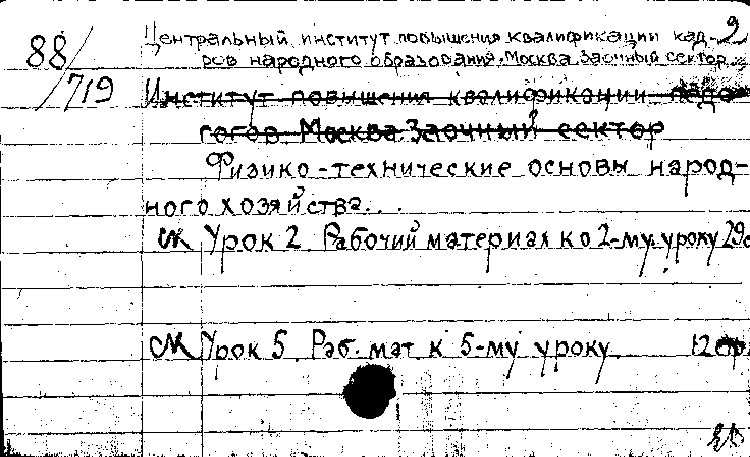 9
88/719
Центральный институт повышения квалификации кад-
ров народного образования. Москва. Заочный сектор.
Институт повышения квалификации педа-
гогов. Москва. Заочный сектор
Физико-технические основы народ-
ного хозяйства...
СК Урок 2. Рабочий материал ко 2-му уроку 29с
СК Урок 5. Раб. мат к 5-му уроку. 12 стр.